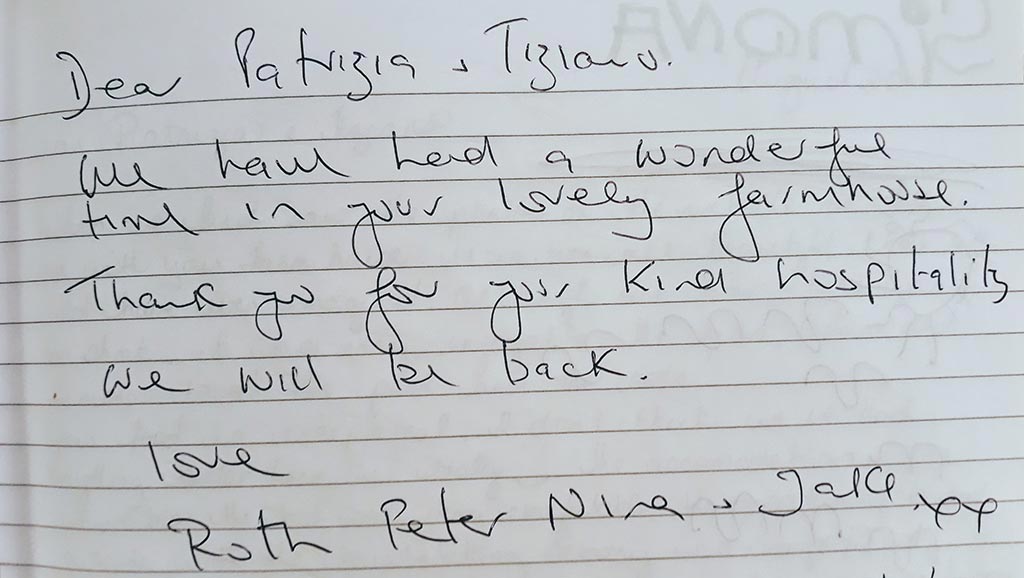 Dear Patrizia + Tiziano.
We have had a wonderful
time in your lovely farmhouse.
Thank you for your kind hospitality
we will be back.
love
Ruth Peter Nina + Jake xx